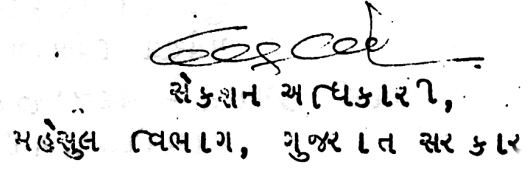 સેકશન અધિકારી,
મહેસુલ વિભાગ, ગુજરાત સરકાર